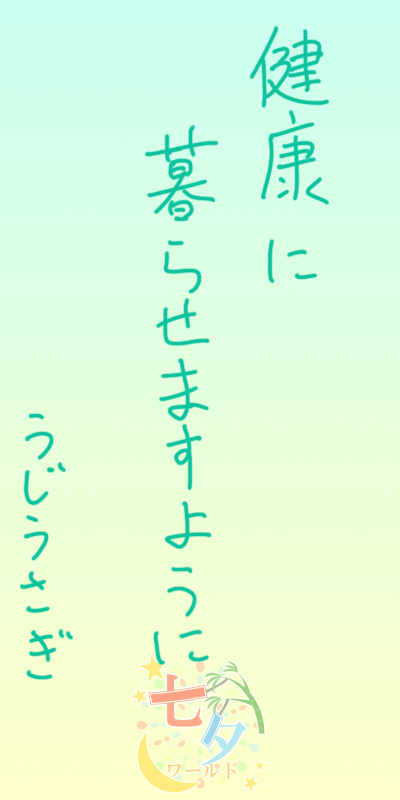 健康に
暮らせますように
うじうさぎ
七夕
ワールド